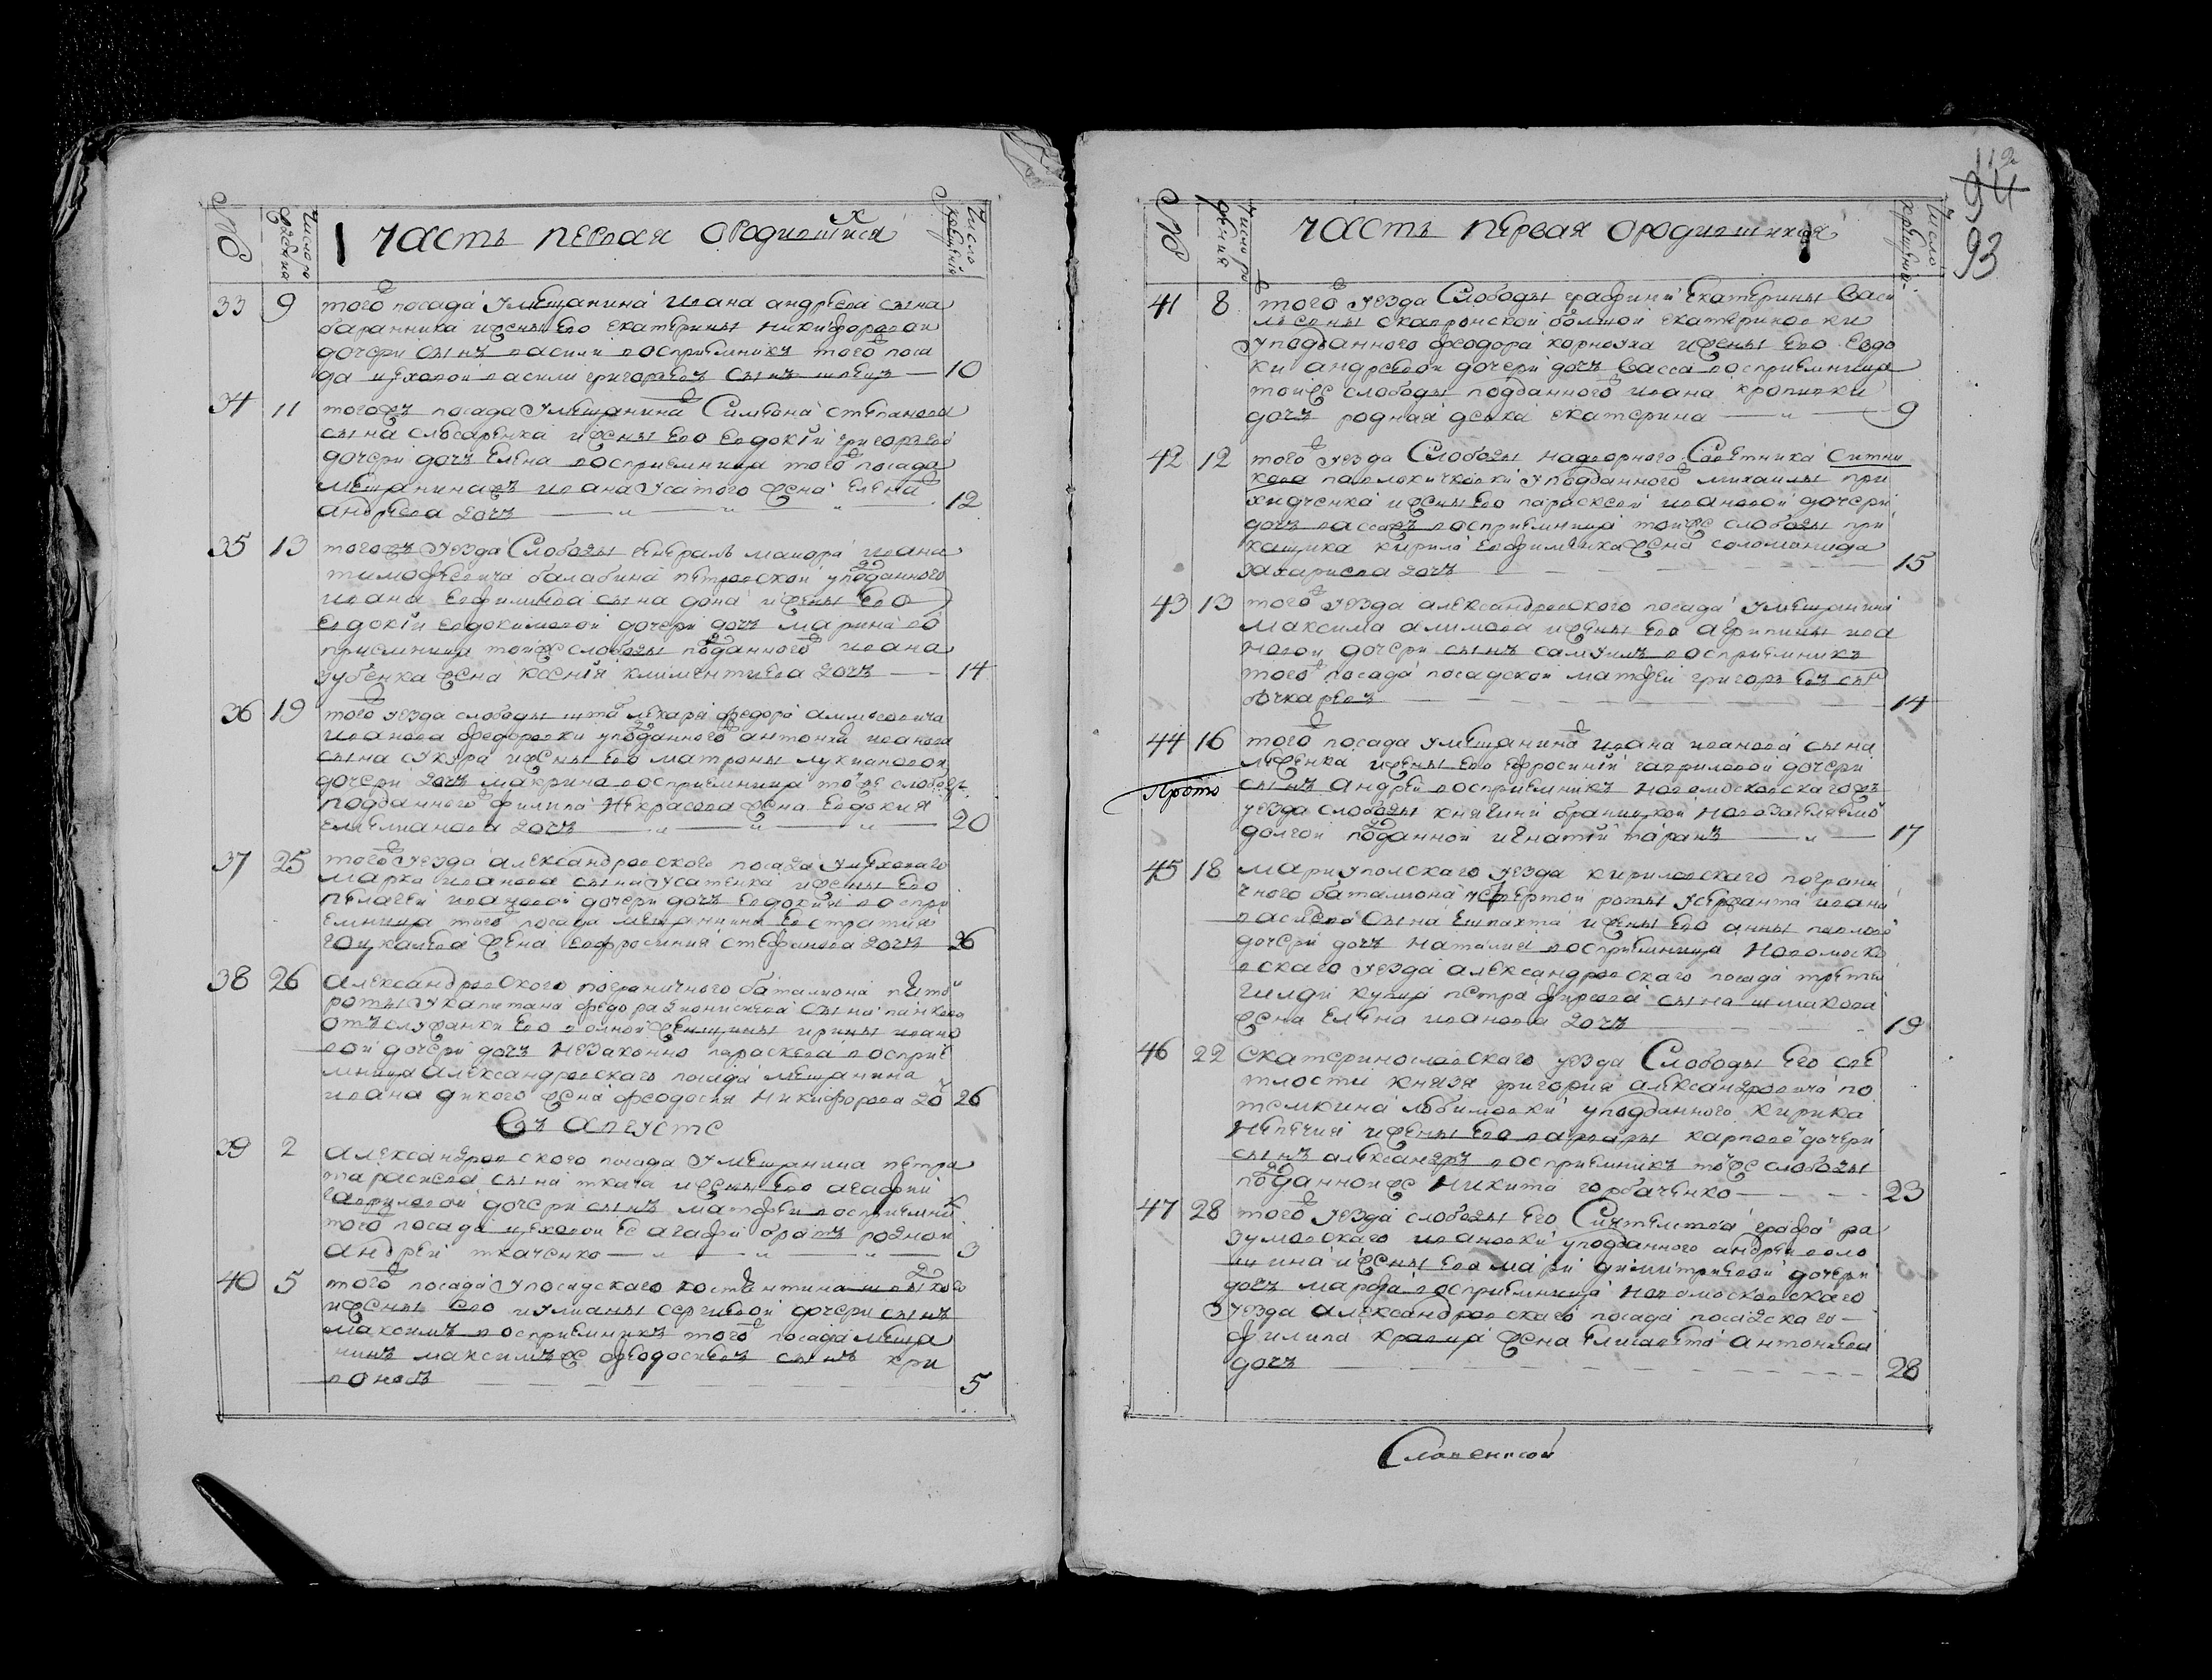 №
Число рождения
Часть первая ѡ родившихся
Число крещения
33 9 того посада у мещанина ивана андреева сына
баранника и жены его екатерины никифоровой
дочери сынъ василий восприемникъ того поса
да цеховой василий григорьевъ сынъ швецъ — 10
34 11 тогожъ посада у мещанина Симеона степанова
сына слюсаренка и жены его евдокии григорьевой
дочери дочь елена восприемница того посада
мещанинажъ ивана усатого жена елена
андреева дочь — 12
35 13 тогожъ уезда Слободы генералъ маиора ивана
тимофеевича балабина петровской у подданного
ивана евфимиева сына дона и жены его
евдокии евдокимовой дочери дочь марина во
приемница тойже слободы подданного ивана
зубенка жена ксения климентиева дочь — 14
36 19 того уезда слободы штаб лекаря федора
иванова федоровки у подданного антона иванова
сына сукура и жены его матроны лукиановой
дочери дочь макрина восприемница тойже слободы
подданного филипа некрасова жена евдокия
емелианова дочь — 20
37 25 того уезда александровского посада у цехового
марка иванова сына усатенка и жены его
пелагеи ивановой дочери дочь евдокия воспри
емница того посада мещанина евстратия
гоцкалева жена евфросиния стефанова дочь 26
38 26 Александровского пограничного баталиона пятой
роты у капитана федора дионисиева сына панкова
отъ служанки его волной женщины ирины ивано
вой дочери дочь незаконно параскева восприе
мница александровскаго посада мещанина
ивана дикого жена феодосия никифорова доч 26
Въ Августе
39 2 Александровского посада у мещанина петра
тарасиева сына ткача и жены его агафии
гавриловой дочери сынъ матфей восприемник
того посада цеховой ее агафии братъ родной
андрей ткаченко — 3
40 5 того посада у посадскаго костантина
и жены его иулианы сергиевой дочери сынъ
максимъ восприемникъ того посада меща
нинъ максимъ же феодосиевъ сынъ кри
воносъ — 5
112
94
93
№
Число рождения
Часть первая ѡ родившихся
Число крещения
41 8 того уезда Слободы графини Екатерины Васи
льевны скавронской болшой екатериновки
у подданного феодора корноуха и жены его евдо
кии андреевой дочери дочь васса восприемница
тойже слободы подданного ивана кропивки
дочь родная девка екатерина — 9
42 12 того уезда Слободы надворного Советника ситни
кова павлокичковки у подданного михаилы при
ходченка и жены его параскевой ивановой дочери
дочь вассажъ восприемница тойже слободы при
кащика кирила евфименка жена соломонида
захариева дочь — 15
43 13 того уезда александровского посада у мещанина
максима алимова и жены его агрипины ива
новой дочери сынъ самуилъ восприемникъ
того посада посадской матфей григорьевъ сын
бочкаревъ — 14
44 16 того посада у мещанина ивана иванова сына
леженка и жены его ефросинии гавриловой дочери
Прото
сынъ андрей восприемникъ новомосковскагожъ
уезда слободы княгини браницкой
долгой подданной игнатий таранъ — 17
45 18 мариуполскаго уезда кириловскаго пограни
чного баталиона четвертой роты у сержанта ивана
васильева сына и жены его анны павловой
дочери дочь наталия восприемница новомоско
вскаго уезда александровскаго посада третей
гилди купца петра фирсова сына шмакова
жена елена иванова дочь — 19
46 22 Екатеринославского уезда Слободы Его све
тлости князя григория александровича по
темкина любимовки у подданного кирика
непечия и жены его варвары карповой дочери
сынъ александръ восприемникъ тойже слободы
подданнойже никита горбаченко — 23
47 28 того уезда слободы его Сиятелства графа ра
зумовскаго ивановки у подданного андрея воло
шина и жены его марии димитриевой дочери
дочь марфа восприемница новомосковскаго
уезда Александровскаго посада посадскаго
филипа кравца жена елисавета антониева
дочь — 28